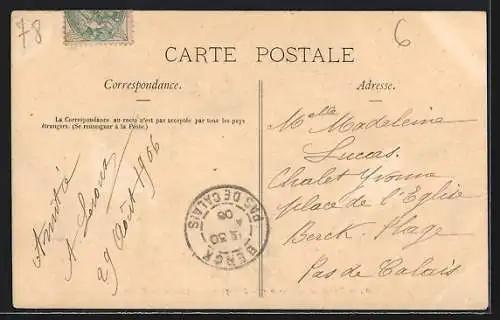 78
6
CARTE POSTALE
Correspondance.
Adresse.
La Correspondance au recto n'est pas acceptée par tous les pays
étrangers. (Se renseigner à la Poste.)
Amitié
29 Août 1906
Melle Madeleine
Lucas.
Chalet Yvonne
place de l'Eglise
Berck-Plage
Pas de Calais
BERCK
PAS DE CALAIS